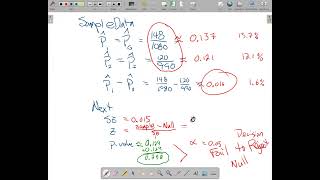 Sample Data
P̂₁ = P̂G = 148/1080 ≈ 0.137 13.7%
P̂₂ = P̂₂ = 120/990 ≈ 0.121 12.1%
P̂₁ - P̂₂ = 148/1080 - 120/990 ≈ 0.016 1.6%
Next
SE = 0.015
Z = sample - Null / SE =
P.value ≈ 0.124
+0.124
0.248
α = 0.05
Decision
Fail to Reject
Null